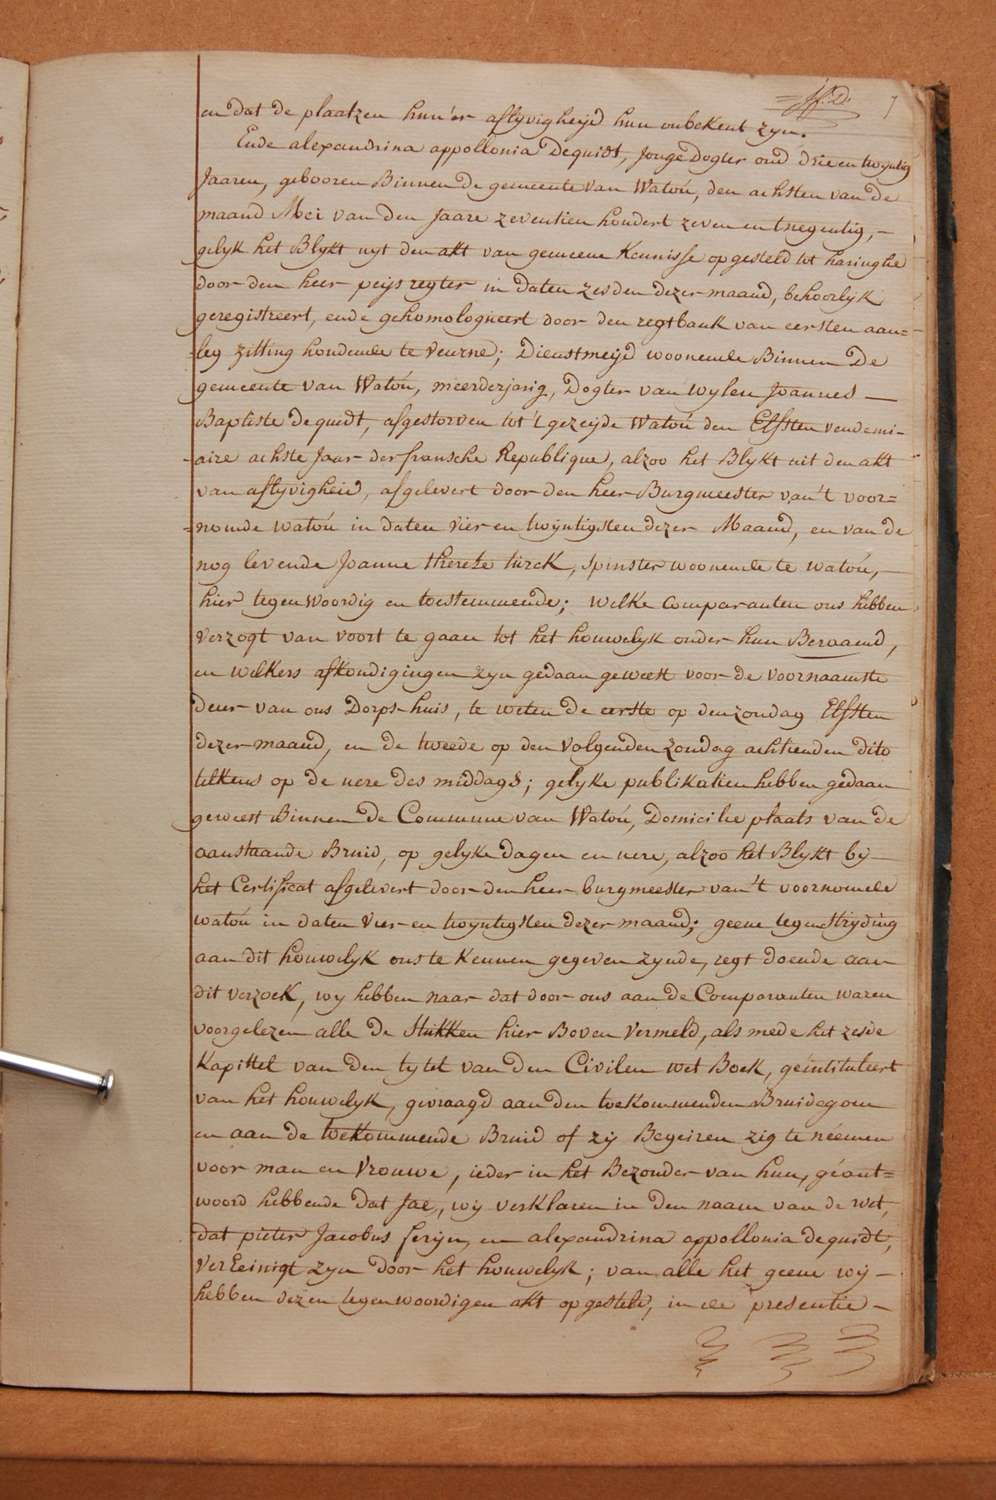 en dat de plaatzen hun'er aflyvigheijd hun onbekent zyn.
Ende alexandrina appollonia Dequidt, Jonge Dogter oud drie en twyntig
Jaaren, gebooren Binnen de gemeente van Watoú, den achsten van de
maand Mei van den Jaare zeventien hondert zeven en tnegentig, –
gelyk het Blykt uyt den akt van gemeene Kennisse opgesteld tot haringhe
door den heer peijs regter in daten zesden dezer maand, behoorlyk
geregistreert, ende gehomologueert door den regtbank van eersten aan=
=leg zitting houdende te Veurne; Dienstmeijd woonende Binnen De
gemeente van Watoú, meerderjarig, Dogter van wylen Joannes —
Baptiste dequidt, afgestorven tot 't gezeijde Watoú den Elfsten vendemi-
-aire achste Jaar der fransche Republique, alzoo het Blykt uit den akt
van aflyvigheid, afgelevert door den heer Burgmeester van't voor=
=nomde watoú in daten vier en twyntigsten dezer Maand, en van de
nog levende Joanne therese túrck, spinster woonende te watoú, —
hier tegenwoordig en toestemmende; welke comparanten ons hebben
verzogt van voort te gaan tot het houwelyk onder hun Beraamd,
en welkers afkondigingen zyn gedaan geweest voor de voornaamste
deur van ons Dorps-huis, te weten de eerste op den zondag Elfsten
dezer maand, en de tweede op den volgenden zondag achtienden dito
telkens op de uere des middags; gelyke publikatien hebben gedaan
geweest Binnen de Commune van Watoú, Domicilie plaats van de
aanstaande Bruid, op gelyke dagen en uere, alzoo het Blykt by —
het Certificat afgelevert door den heer burgmeester van't voornomde
watoú in daten vier en twyntigsten dezer maand; geene tegenstryding
aan dit houwelyk ons te kennen gegeven zynde, regt doende aan
dit verzoek, wy hebben naar dat door ons aan de Comparanten waren
voorgelezen alle de stukken hier Boven vermeld, als mede het zesde
Kapittel van den tytel van den Civilen wet Boek, geintituleert
van het houwelyk, gevraagd aan den toekommenden Bruidegom
en aan de toekommende Bruid of zy Begeiren zig te néemen
voor man en vrouwe, ieder in het Bezonder van hun, géant=
woord hebbende dat Jae, wy verklaren in den naam van de wet,
dat pieter Jacobus en alexandrina appollonia dequidt,
verEeinigt zyn door het houwelyk; van alle het geene wij –
hebben dezen tegenwoordigen akt opgesteld, in de presentie –